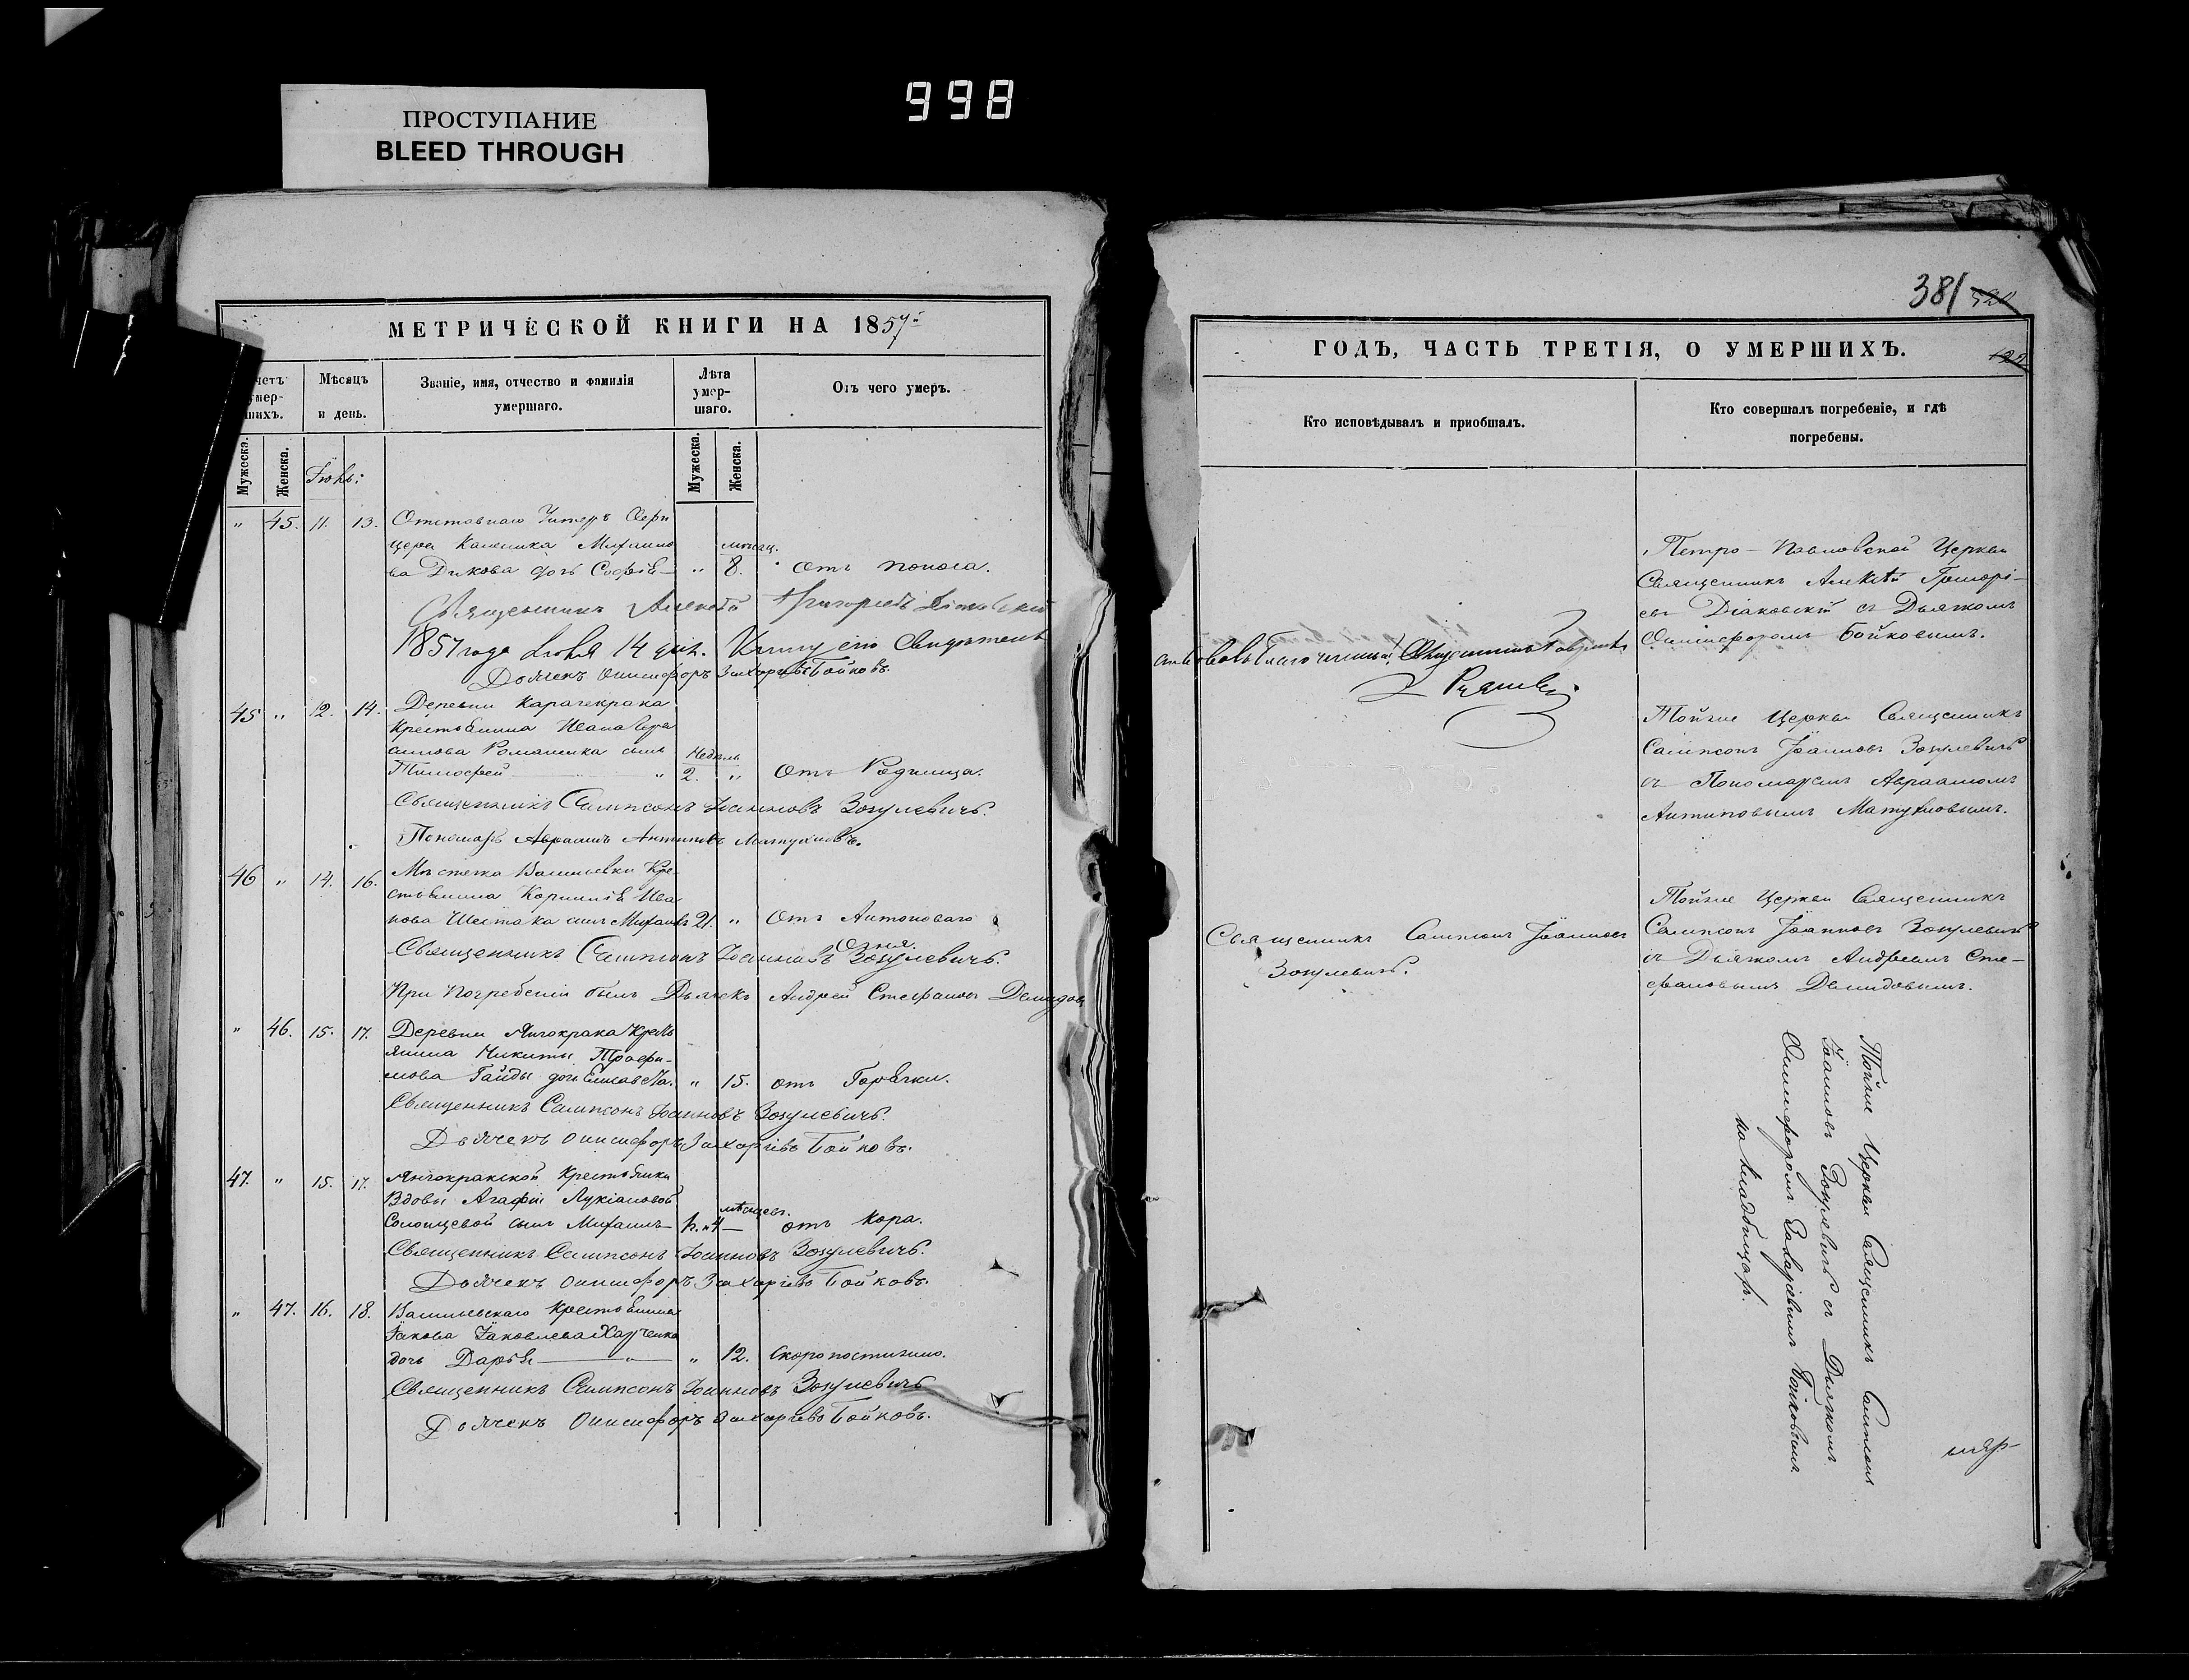 998
ПРОСТУПАНИЕ
BLEED THROUGH
МЕТРИЧЕСКОЙ КНИГИ НА 1857
четъ умер- шихъ.
Мѣсяцъ и день.
Званіе, имя, отчество и фамилія умершаго.
Лѣта умер- шаго.
Отъ чего умеръ.
Мужеска.
Женска.
Мужеска.
Женска.
Іюнь:
" 45. 11. 13. Отставнаго Унтеръ Офи
цера Михаило
ва Дикова дочь Софія " 8. отъ поноса.
Священникъ Алексѣй Григоріевъ Діаковскій
1857 года Іюня 14 дня. Книгу сію
Дьячекъ Онисифоръ Захаріевъ Бойковъ.
45 " 12. 14. Деревни Карачекрака
Крестьянина Ивана Гера
симова Романенка сынъ Недѣль
Тимофей " 2. " отъ Родимца.
Священникъ Сампсонъ Іоанновъ Зозулевичъ.
Пономарь Авраамъ Антиповъ Матухновъ.
46 " 14. 16. Мѣстечка Васильевки Кре
стьянина Корнилія Ива
нова Шестака сынъ Михаилъ 21. " отъ Антоноваго
огня.
Священникъ Сампсонъ Іоанновъ Зозулевичъ.
При погребеніи былъ Дьячекъ Андрей Стефановъ Демидовъ
" 46. 15. 17. Деревни Янчокрака Кресть
янина Никиты Трофи-
мова Гайды дочь " 15. отъ Горячки.
Священникъ Сампсонъ Іоанновъ Зозулевичъ.
Дьячекъ Онисифоръ Захаріевъ Бойковъ.
47. " 15. 17. Янчокракской Крестьянки
Вдовы Агафіи Лукіановой
мѣсяцевъ.
сынъ Михаилъ 4 отъ Кора.
Священникъ Сампсонъ Іоанновъ Зозулевичъ.
Дьячекъ Онисифоръ Захаріевъ Бойковъ.
" 47. 16. 18. Васильевскаго Крестьянина
Іакова Іаковлева Харченка
дочь Дарья " " 12. Скоропостижно.
Священникъ Сампсонъ Іоанновъ Зозулевичъ
Дьячекъ Онисифоръ Захаріевъ Бойковъ.
381
ГОДЪ, ЧАСТЬ ТРЕТІЯ, О УМЕРШИХЪ.
Кто исповѣдывалъ и пріобщалъ.
Кто совершалъ погребеніе, и гдѣ погребены.
Петро-Павловской Церкви
Священникъ Алексѣй Григорі-
евъ Діаковскій съ Дьячкомъ
Онисифоромъ Бойковымъ.
Благочинный, Священникъ
Тойже Церкви Священникъ
Сампсонъ Іоанновъ Зозулевичъ
съ Пономаремъ Авраамомъ
Антиповымъ Матухновымъ.
Священникъ Сампсонъ Іоанновъ
Зозулевичъ.
Тойже Церкви Священникъ
Сампсонъ Іоанновъ Зозулевичъ
съ Дьячкомъ Андреемъ Сте-
фановымъ Демидовымъ.
Тойже Церкви Священникъ Сампсонъ
Іоанновъ Зозулевичъ съ Дьячкомъ
Онисифоромъ Захаріевымъ Бойковымъ
на кладбищахъ.